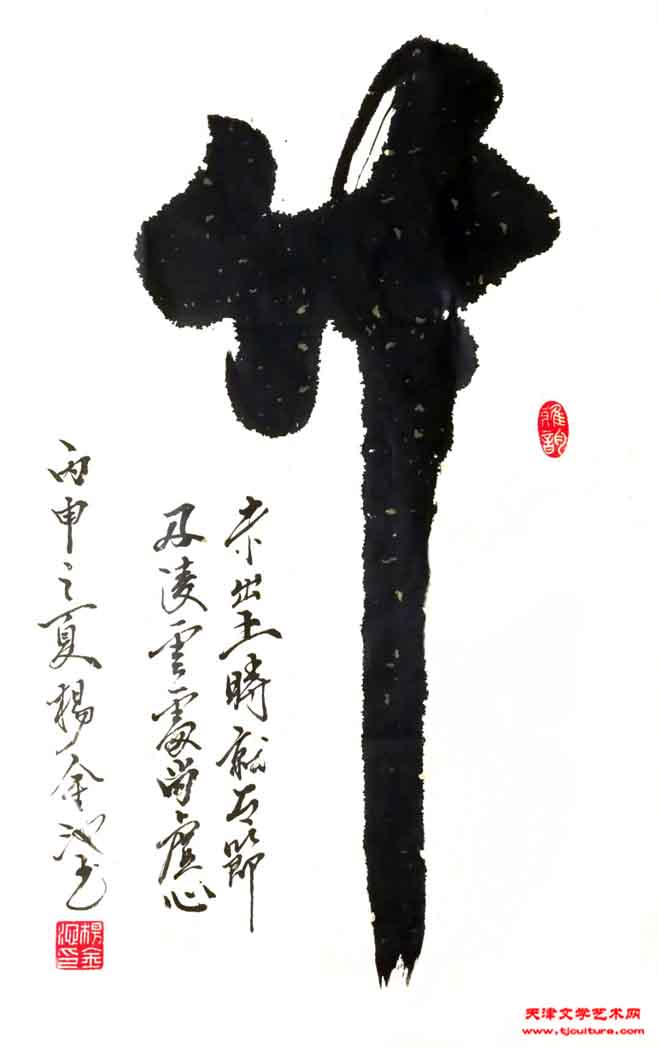 竹
雅韻
未出土時就有節
及凌雲處尚虛心
丙申之夏楊金池書
楊金池印
天津文学艺术网
www.tjculture.com